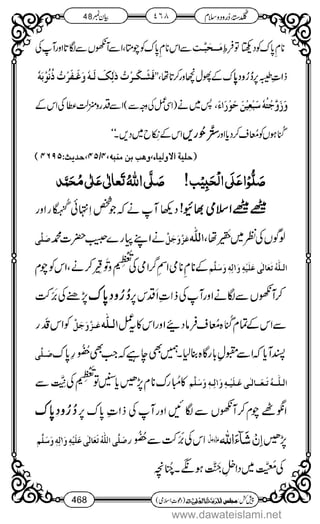 بیان نمبر 48
٤٦٨
گلدستۂ درود و سلام
نامِ پاک کو دیکھتا تو فرطِ مَحَبَّت سے اس نامِ پاک کو چومتا، اسے آنکھوں سے لگاتا اور آپ کی
ذاتِ طیبہ پر دُرُودِ پاک کے پھول نچھاور کرتا تھا، ”فَشَكَرْتُ ذٰلِكَ لَهٗ وَغَفَرْتُ ذُنُوْبَهٗ
وَزَوَّجْتُهٗ سَبْعِيْنَ حَوْرَاءَ، پس میں نے (اسی عمل کی وجہ سے) اسے قدر و منزلت عطا کی اس کے
گناہوں کو معاف کردیا اور ستَّر حوریں اس کے نکاح میں دے دیں۔“
(حلیة الاولیاء، وھب بن منبه، ٤٥/٤، حدیث: ٤٦٩٥)
صَلُّوْا عَلَى الْحَبِیْب! صَلَّى اللّٰهُ تَعَالٰى عَلٰى مُحَمَّد
میٹھے میٹھے اسلامی بھائیو! دیکھا آپ نے کہ جو شخص انتہائی گنہگار اور
لوگوں کی نظر میں حقیر تھا، اللّٰہ عَزَّوَجَلَّ نے اپنے پیارے حبیب حضرت محمَّد صَلَّى
اللّٰهُ تَعَالٰى عَلَیْهِ وَاٰلِهٖ وَسَلَّم کے نامِ نامی اسمِ گرامی کی تعظیم و توقیر کرنے، اس کو چوم
کر آنکھوں سے لگانے اور آپ کی ذاتِ اقدس پر دُرُودِ پاک پڑھنے کی برکت
سے اس کے تمام گناہ معاف فرمادیئے اور اس کا یہ عمل اللّٰہ عَزَّوَجَلَّ کو اس قدر
پسند آیا کہ اسے مقبولِ بارگاہ بنالیا۔ ہمیں بھی چاہیے کہ جب بھی حُضُورِ پاک صَلَّى
اللّٰهُ تَعَالٰى عَلَیْهِ وَاٰلِهٖ وَسَلَّم کا مُبارک نام پڑھیں یا سنیں تو تعظیم کی نِیَّت سے
انگوٹھے چوم کر آنکھوں سے لگائیں اور آپ کی ذاتِ پاک پر دُرُودِ پاک
پڑھیں اِنْ شَآءَ اللّٰه عَزَّوَجَلَّ اس کی برکت سے حُضُور صَلَّى اللّٰهُ تَعَالٰى عَلَیْهِ وَاٰلِهٖ وَسَلَّم
کی مَعِیَّت میں داخلِ جنَّت ہوں گے۔ چُنانچِہ
468
پیش کش: مجلس اَلْمَدِیْنَةُ الْعِلْمِیَّة (دعوتِ اسلامی)
www.dawateislami.net